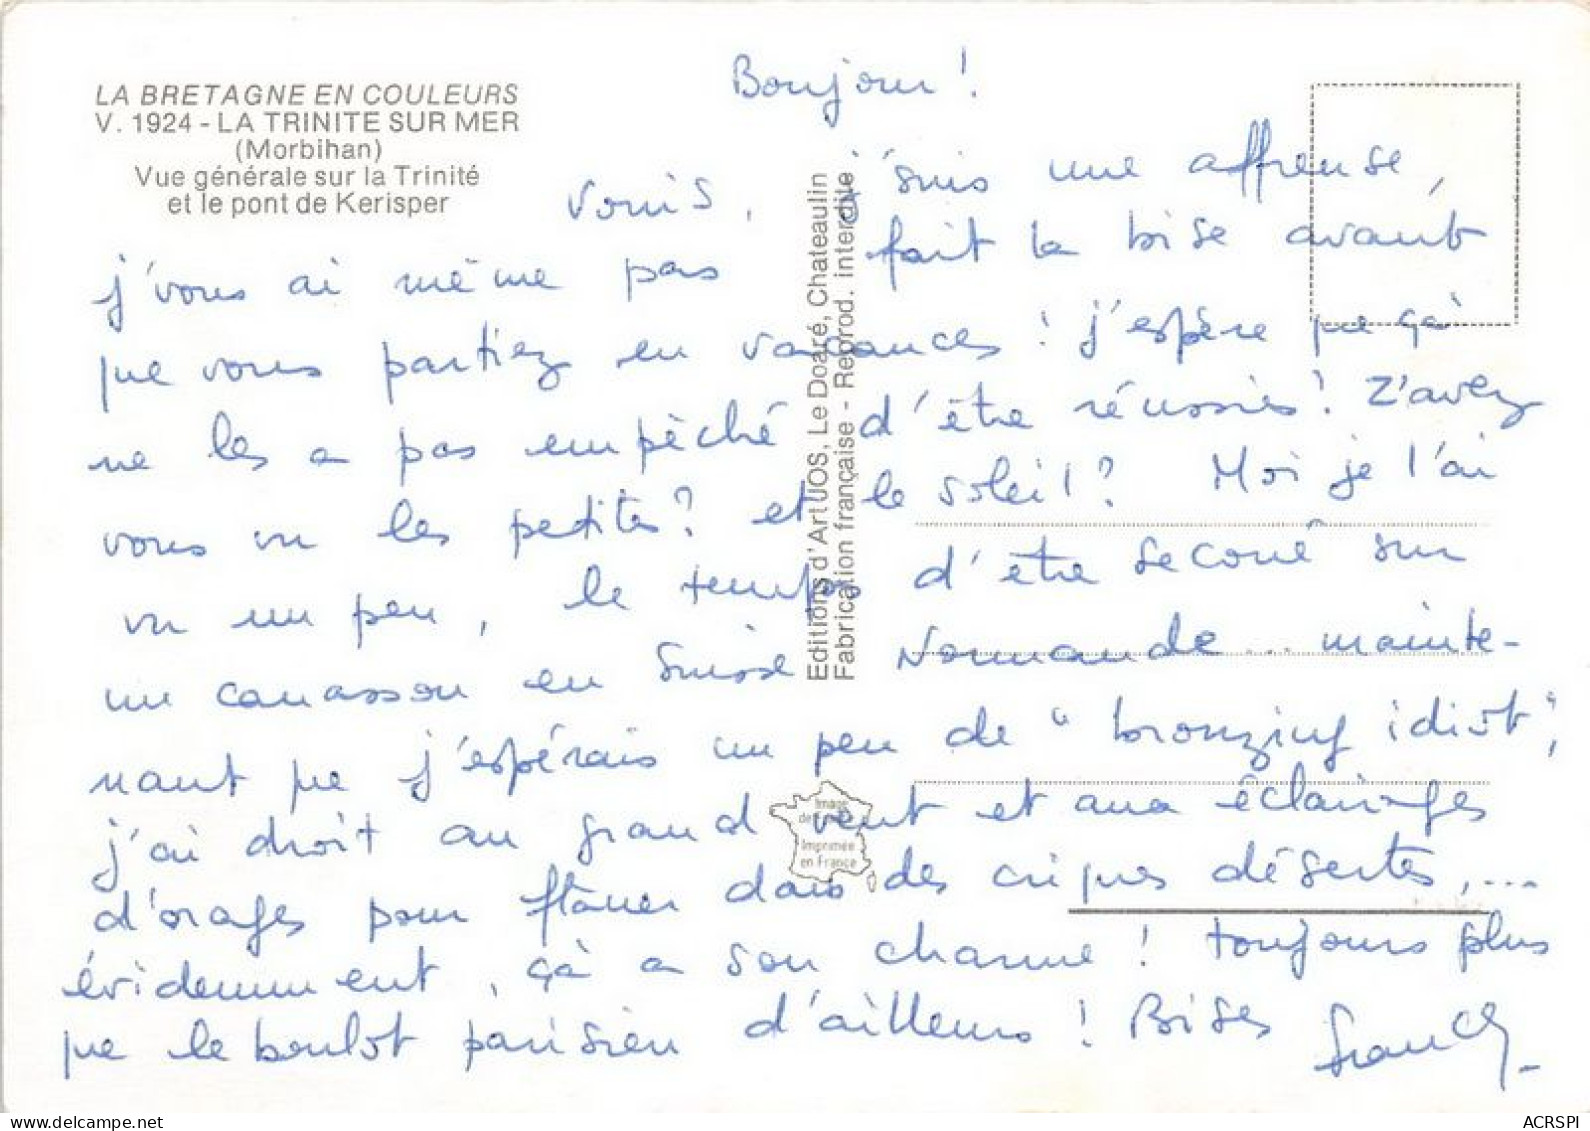 LA BRETAGNE EN COULEURS
V. 1924 - LA TRINITE SUR MER
(Morbihan)
Vue générale sur la Trinité
et le pont de Kerisper
Bonjour !
j'suis une affreuse,
j'vous ai même pas fait la bise avant
que vous partiez en vacances ! j'espère que çà
ne les a pas empêché d'être réussies ! Z'avez
vous vu les petites ? et le soleil ? Moi je l'ai
vu un peu, le temps d'être secoué sur
un canasson en Suisse Normande... mainte-
nant que j'espérais un peu de "bronzing idiot",
j'ai droit au grand vent et aux éclairages
d'orages pour flâner dans des criques désertes,...
évidemment, çà a son charme ! toujours plus
que le boulot parisien d'ailleurs ! Bises
Editions d'Art JOS, Le Doaré, Chateaulin
Fabrication française - Reprod. interdite
Image
de France
Imprimée
en France
ACRSPI